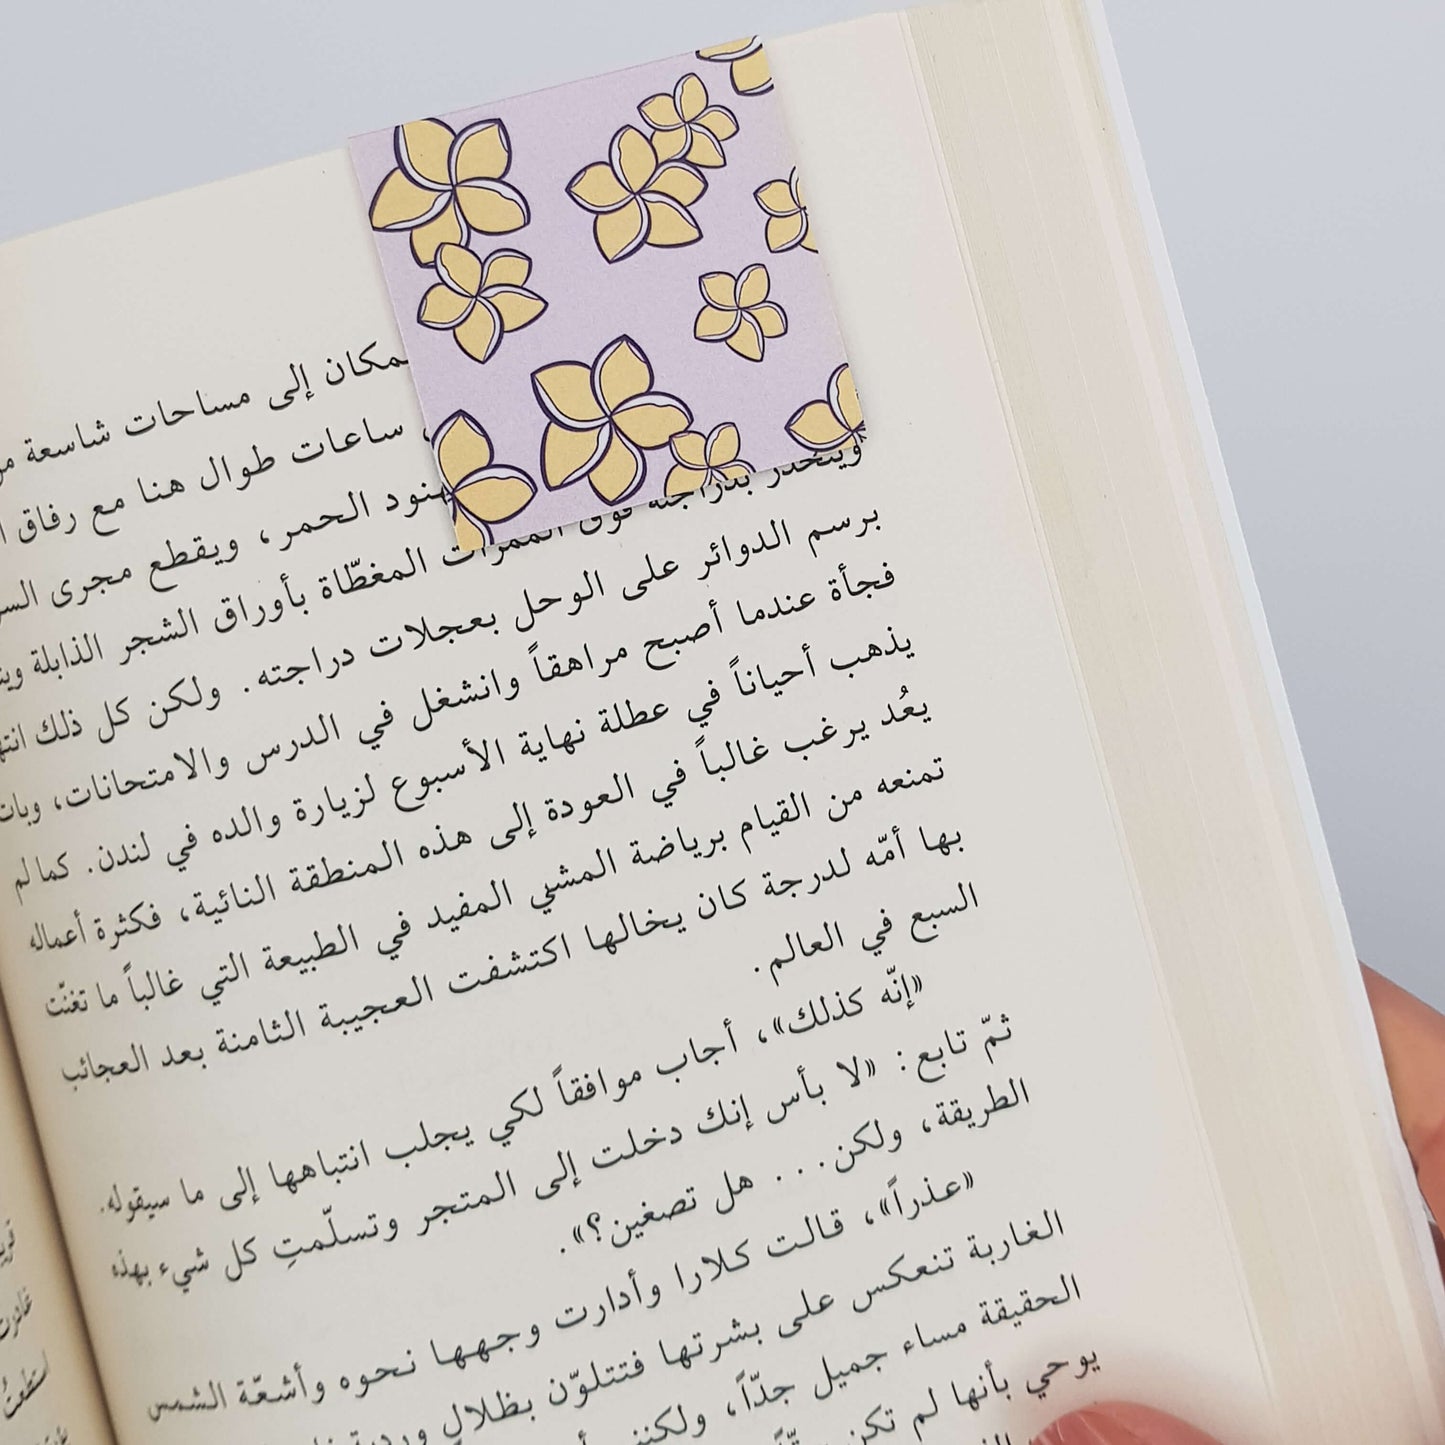 إلى مساحات شاسعة
، ساعات طوال هنا مع رفاق
الحمر، ويقطع مجرى
وينحدر بدراجته فوق الممرات المغطّاة بأوراق الشجر الذابلة
برسم الدوائر على الوحل بعجلات دراجته. ولكن كل ذلك
فجأة عندما أصبح مراهقاً وانشغل في الدرس والامتحانات، وبات
يذهب أحياناً في عطلة نهاية الأسبوع لزيارة والده في لندن. كما لم
يعُد يرغب غالباً في العودة إلى هذه المنطقة النائية، فكثرة أعماله
تمنعه من القيام برياضة المشي المفيد في الطبيعة التي غالباً ما تغنّت
بها أمّه لدرجة كان يخالها اكتشفت العجيبة الثامنة بعد العجائب
السبع في العالم.
«إنّه كذلك»، أجاب موافقاً لكي يجلب انتباهها إلى ما سيقوله.
ثمّ تابع: «لا بأس إنك دخلت إلى المتجر وتسلّمتِ كل شيء بهذه
الطريقة، ولكن... هل تصغين؟».
«عذراً»، قالت كلارا وأدارت وجهها نحوه وأشعّة الشمس
الغاربة تنعكس على بشرتها فتتلوّن بظلالٍ وردية
الحقيقة مساء جميل جدّاً، ولكنني
يوحي بأنها لم تكن